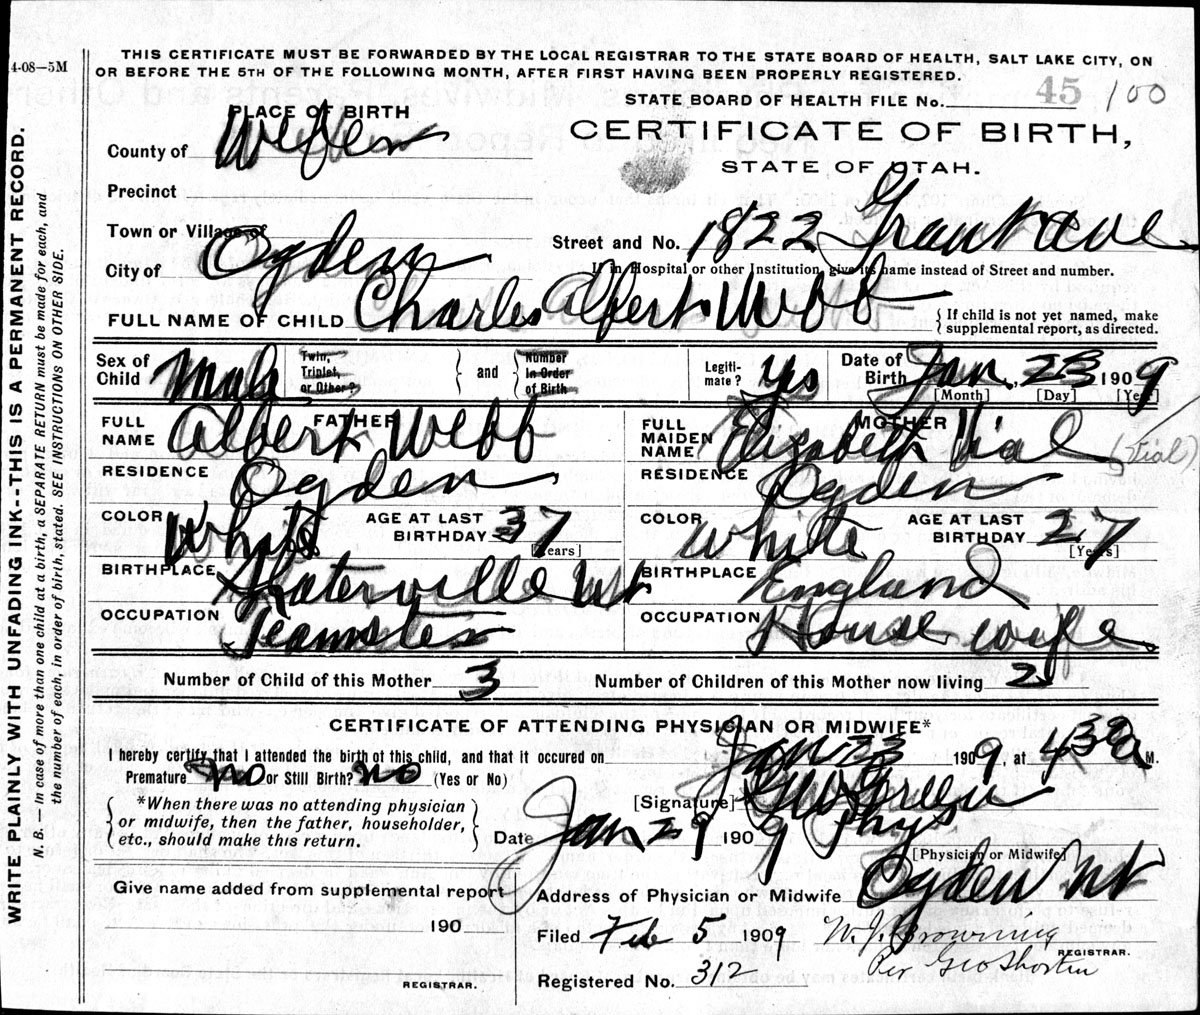 THIS CERTIFICATE MUST BE FORWARDED BY THE LOCAL REGISTRAR TO THE STATE BOARD OF HEALTH, SALT LAKE CITY, ON
OR BEFORE THE 5TH OF THE FOLLOWING MONTH, AFTER FIRST HAVING BEEN PROPERLY REGISTERED.
4-08—5M
STATE BOARD OF HEALTH FILE No. 45 100
PLACE OF BIRTH
CERTIFICATE OF BIRTH,
STATE OF UTAH.
County of Weber
Precinct
Town or Village of
City of Ogden
Street and No. 1822 Grant ave
If in Hospital or other Institution give its name instead of Street and number.
FULL NAME OF CHILD Charles Albert Webb
{ If child is not yet named, make
supplemental report, as directed.
Sex of Child Male
Twin, Triplet, or Other?
} and {
Number in Order of Birth
Legiti-mate? yes
Date of Birth Jan, 23 1909
[Month] [Day] [Year]
FATHER
FULL NAME Albert Webb
RESIDENCE Ogden
COLOR White AGE AT LAST BIRTHDAY 37
[Years]
BIRTHPLACE Slaterville Ut
OCCUPATION Teamster
MOTHER
FULL MAIDEN NAME Elizabeth Vial (Vial)
RESIDENCE Ogden
COLOR White AGE AT LAST BIRTHDAY 27
[Years]
BIRTHPLACE England
OCCUPATION House wife
Number of Child of this Mother 3 Number of Children of this Mother now living 2
CERTIFICATE OF ATTENDING PHYSICIAN OR MIDWIFE*
I hereby certify that I attended the birth of this child, and that it occured on Jan 23 1909, at 430 a M.
Premature no or Still Birth? no (Yes or No)
{ *When there was no attending physician
or midwife, then the father, householder,
etc., should make this return. }
[Signature]
Date Jan 29 1909 Phys
[Physician or Midwife]
Give name added from supplemental report
190
REGISTRAR.
Address of Physician or Midwife Ogden Ut
Filed Feb 5 1909 W. J. Browning
REGISTRAR.
Per Geo Shorten
Registered No. 312
WRITE PLAINLY WITH UNFADING INK--THIS IS A PERMANENT RECORD.
N. B.—In case of more than one child at a birth, a SEPARATE RETURN must be made for each, and
the number of each, in order of birth, stated. SEE INSTRUCTIONS ON OTHER SIDE.